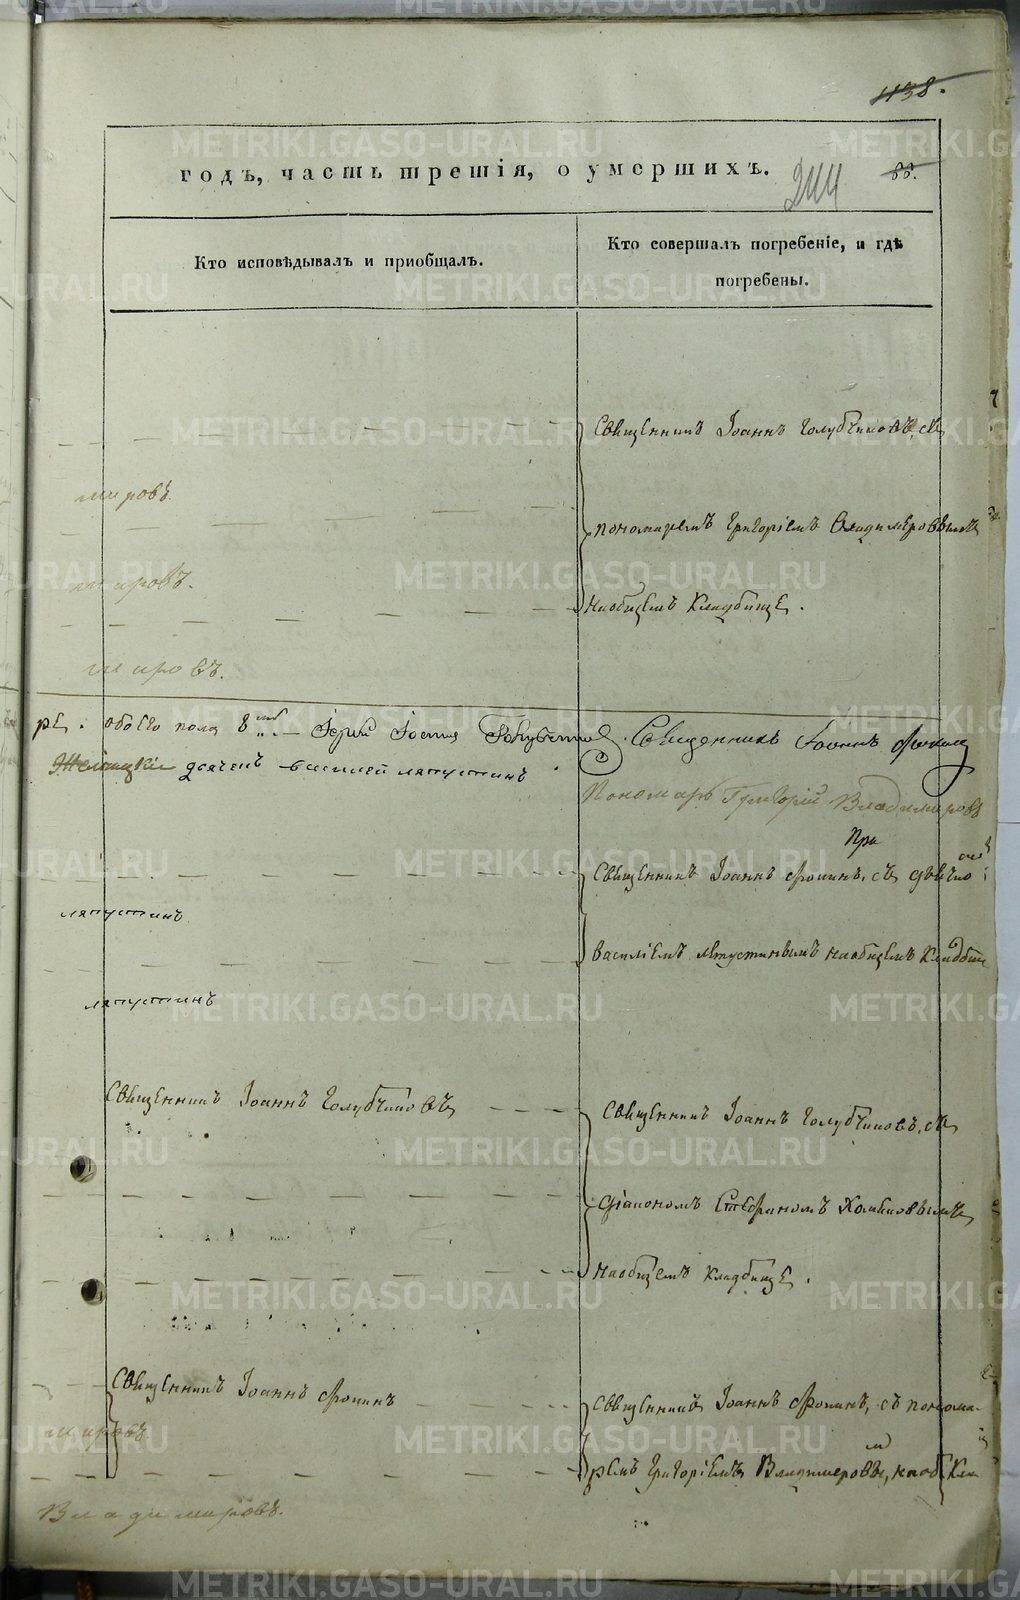 1138.
годъ, часть третія, о умершихъ.
244
88.
Кто исповѣдывалъ и приобщалъ.
Кто совершалъ погребеніе, и гдѣ
погребены.
Священникъ Іоаннъ Голубчиковъ, съ
мировъ.
пономаремъ Григоріемъ Владимеровымъ
мировъ.
Наобщемъ Кладбище.
мировъ.
обоего пола 8
Священникъ Іоаннъ Фокинъ
дьячекъ Василей Ляпустинъ
Пономарь Григорій Владимировъ
При
Священникъ Іоаннъ Фокинъ, съ
ляпустинъ
Василіемъ Ляпустинымъ наобщемъ Кладбище
ляпустинъ
Священникъ Іоаннъ Голубчиковъ
Священникъ Іоаннъ Голубчиковъ, съ
діакономъ Стефаномъ
Наобщемъ Кладбище.
Священникъ Іоаннъ Фокинъ
Священникъ Іоаннъ Фокинъ, съ понома-
мировъ
ремъ Григоріемъ Владимеровы м, наоб. Кла
Владимировъ.
METRIKI.GASO-URAL.RU